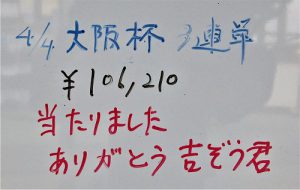 4/4 大阪杯 3連単
¥106,210
当たりました
ありがとう 吉ぞう君